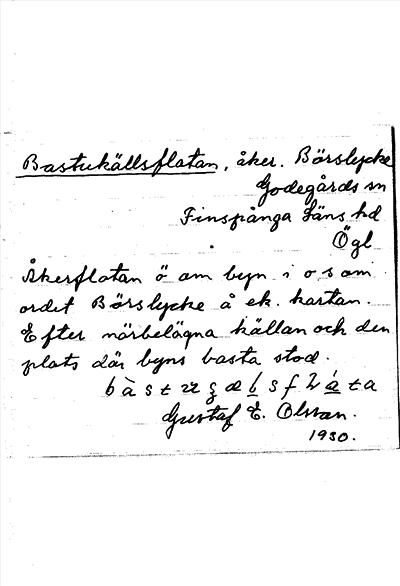 Bastukällsflatan, åker. Börslycke
Godegårds sn
Finspånga läns hd
Ögl
Åkerflatan ö om byn i o s om
ordet Börslycke å ek. kartan.
Efter närbelägna källan och den
plats där byns basta stod.
Gustaf E. Olsson.
1930.